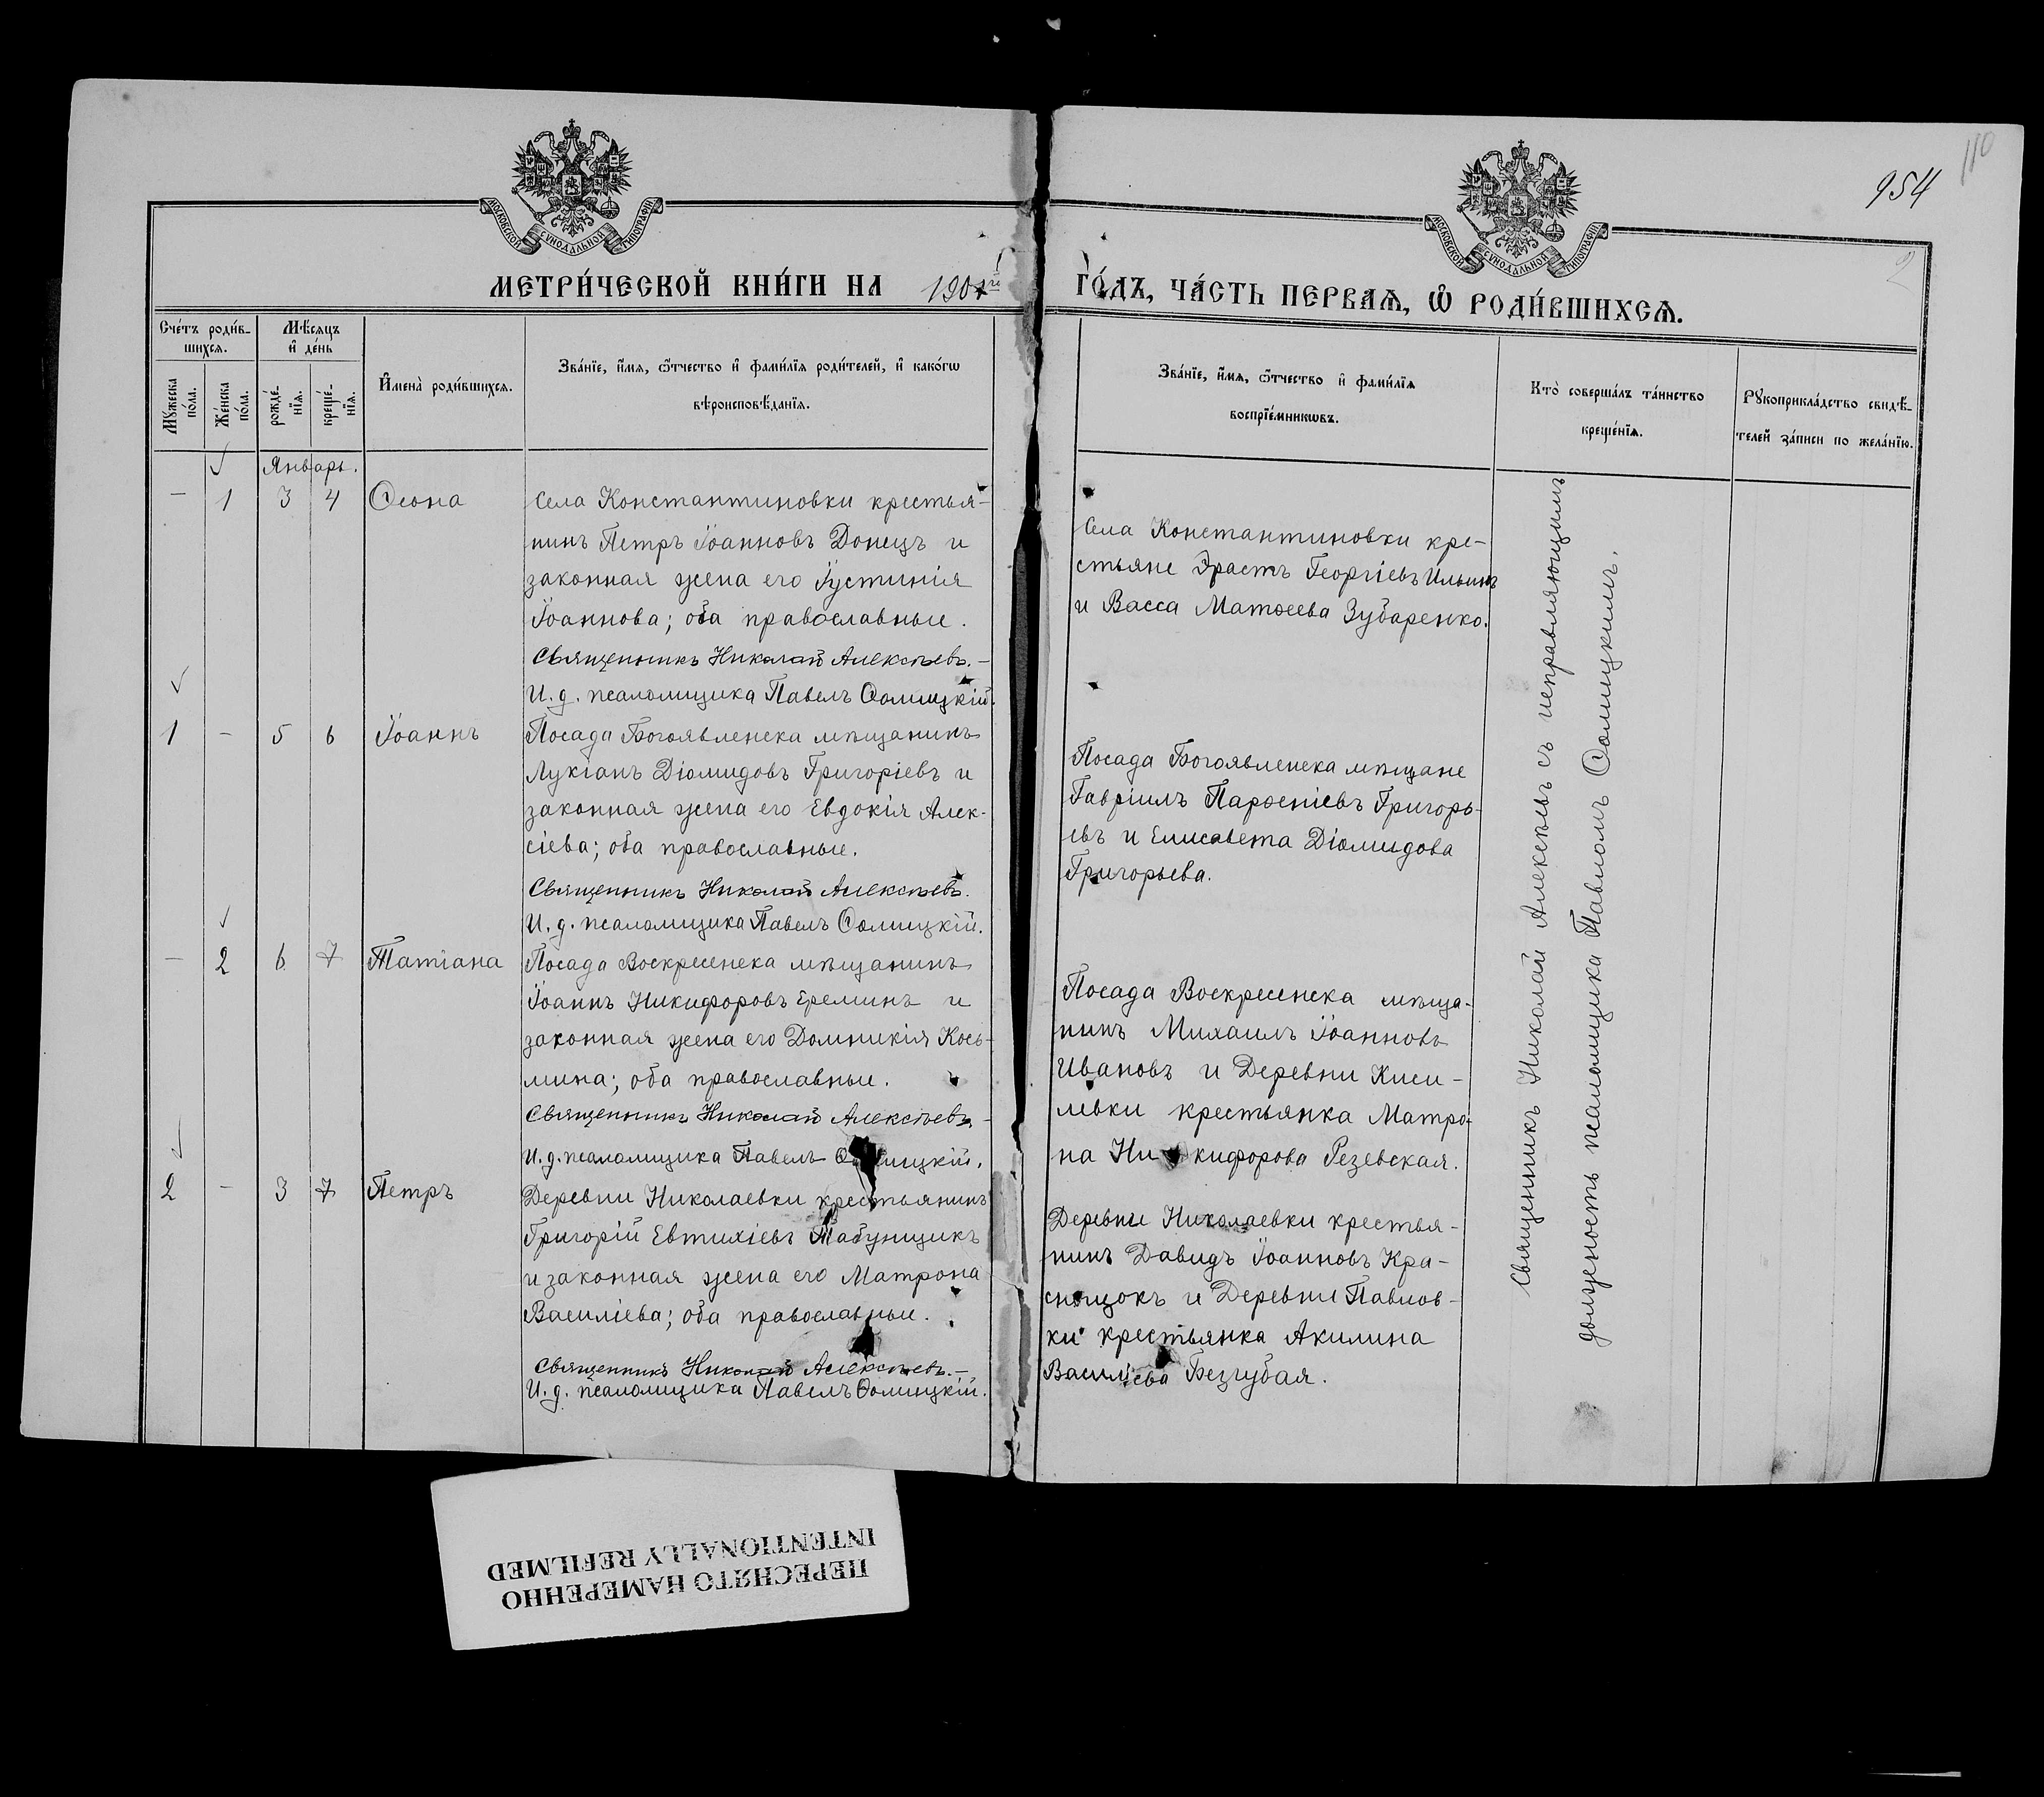 110
954
2
МОСКОВСКОЙ СѴНОДАЛЬНОЙ ТИПОГРАФІИ
МОСКОВСКОЙ СѴНОДАЛЬНОЙ ТИПОГРАФІИ
МЕТРИ́ЧЕСКОЙ КНИ́ГИ НА
ГО́ДЪ, ЧА́СТЬ ПЕРВАѦ, Ѡ҆ РОДИ́ВШИХСѦ.
Сче́тъ роди́в-
шихся.
Мѣ́сяцъ
и҆ де́нь
Мꙋжеска
по́ла.
Же́нска
по́ла.
рожде́-
нїя.
креще́-
нїя.
И҆мена̀ роди́вшихся.
Зва́нїе, и҆́мя, ѻ҆́тчество и҆ фами́лїя роди́телей, и҆ како́гѡ
вѣроисповѣ́данїя.
Зва́нїе, и҆́мя, ѻ҆́тчество и҆ фами́лїя
воспрїе́мникѡвъ.
Кто̀ соверша́лъ та́инство
креще́нїя.
Рꙋкоприкла́дство свидѣ́-
телей за́писи по жела́нїю.
Январь.
— 1 3 4 Ѳеона
Села Константиновки крестья-
нинъ Петръ Іоанновъ Донецъ и
законная жена его Іустинія
Іоаннова; оба православные.
Священникъ Николай Алексѣевъ.—
И. д. псаломщика Павелъ Ѳомицкій.
Села Константиновки кре-
стьяне Эрастъ Георгіевъ Ильинъ
и Васса Матѳеева Зубаренко.
1 — 5 6 Іоаннъ
Посада Богоявленска мѣщанинъ
Лукіанъ Діомидовъ Григоріевъ и
законная жена его Евдокія Алек-
сіева; оба православные.
Священникъ Николай Алексѣевъ.
И. д. псаломщика Павелъ Ѳомицкій.
Посада Богоявленска мѣщане
Гавріилъ Парѳеніевъ Григорь-
евъ и Елисавета Діомидова
Григорьева.
— 2 6 7 Татіана
Посада Воскресенска мѣщанинъ
Іоаннъ Никифоровъ Ереминъ и
законная жена его Домникія Кось-
мина; оба православные.
Священникъ Николай Алексѣевъ.—
И. д. псаломщика Павелъ
Посада Воскресенска мѣща-
нинъ Михаилъ Іоанновъ
Ивановъ и Деревни Кисе-
левки крестьянка Матро-
на Никифорова Резевская.
2 — 3 7 Петръ
Деревни Николаевки крестьянинъ
Григорій Евтихіевъ Табунщикъ
и законная жена его Матрона
Василіева; оба православные.
Священникъ Николай Алексѣевъ.—
И. д. псаломщика Павелъ Ѳомицкій.
Деревни Николаевки крестья-
нинъ Давидъ Іоанновъ Кра-
снощокъ и Деревни Павлов-
ки крестьянка Акилина
Василіева Безгубая.
Священникъ Николай Алексѣевъ съ исправляющимъ
должность псаломщика Павломъ Ѳомицкимъ.
ПЕРЕСНЯТО НАМЕРЕННО
INTENTIONALLY REFILMED